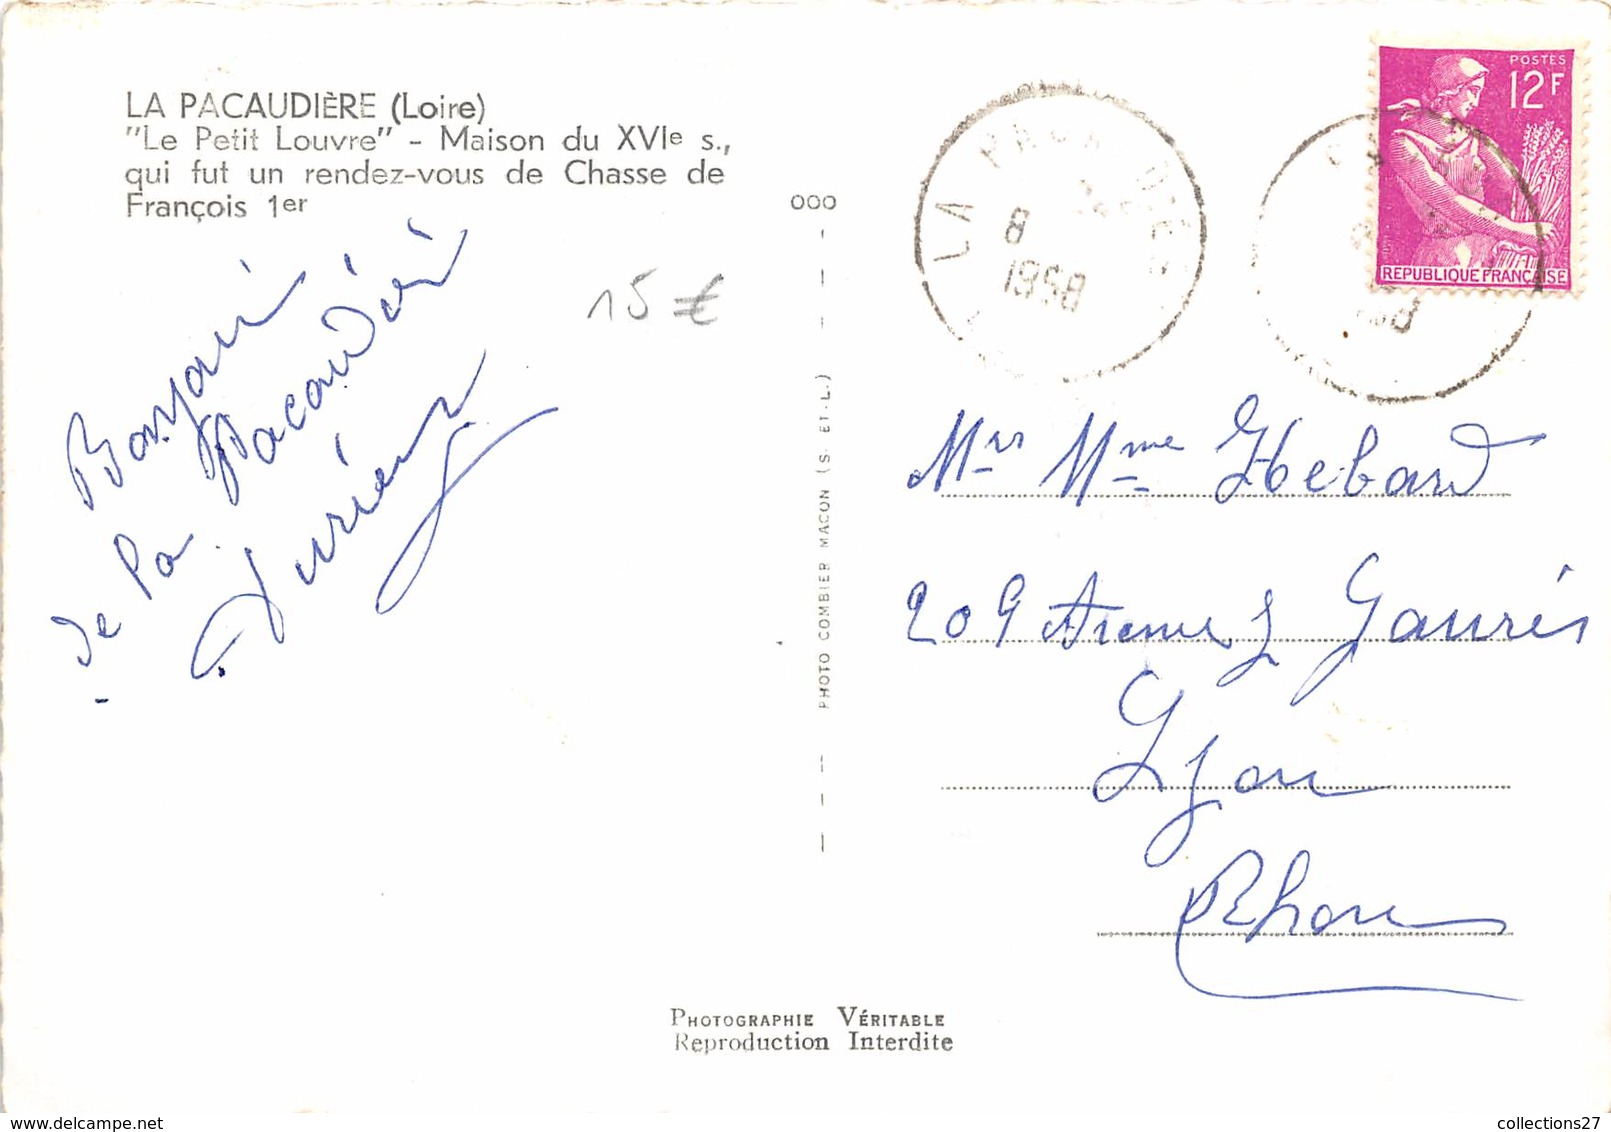 LA PACAUDIÈRE (Loire)
"Le Petit Louvre" - Maison du XVIe s.,
qui fut un rendez-vous de Chasse de
François 1er
15 €
Bonjour
de la Pacaudière
000
PHOTO COMBIER MACON (S. ET-L.)
LA PACAUDIÈRE
8
1958
POSTES
12F
REPUBLIQUE FRANÇAISE
Mrs Mme Hebard
209 Avenue J Jaurès
Lyon
Rhone
PHOTOGRAPHIE VÉRITABLE
Reproduction Interdite
collections27